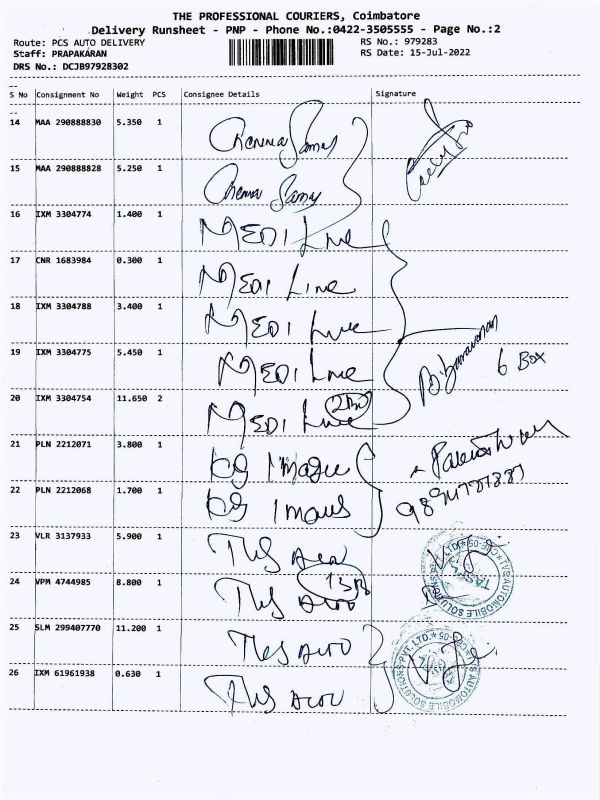 THE PROFESSIONAL COURIERS, Coimbatore
Delivery Runsheet - PNP - Phone No.:0422-3505555 - Page No.:2
Route: PCS AUTO DELIVERY RS No.: 979283
Staff: PRAPAKARAN RS Date: 15-Jul-2022
DRS No.: DCJB97928302
--
S No Consignment No Weight PCS Consignee Details Signature
--
14 MAA 290888830 5.350 1 Chenna Samy
15 MAA 290888828 5.250 1 Chenna Samy
16 IXM 3304774 1.400 1 MEDI Line
17 CNR 1683984 0.300 1 MEDI Line
18 IXM 3304788 3.400 1 MEDI Line
19 IXM 3304775 5.450 1 MEDI Line
6 Box
20 IXM 3304754 11.650 2 MEDI Line
21 PLN 2212071 3.800 1
22 PLN 2212068 1.700 1
23 VLR 3137933 5.900 1 TVS Auto
24 VPM 4744985 8.800 1 TVS Auto
25 SLM 299407770 11.200 1 TVS Auto
26 IXM 61961938 0.630 1 TVS Auto